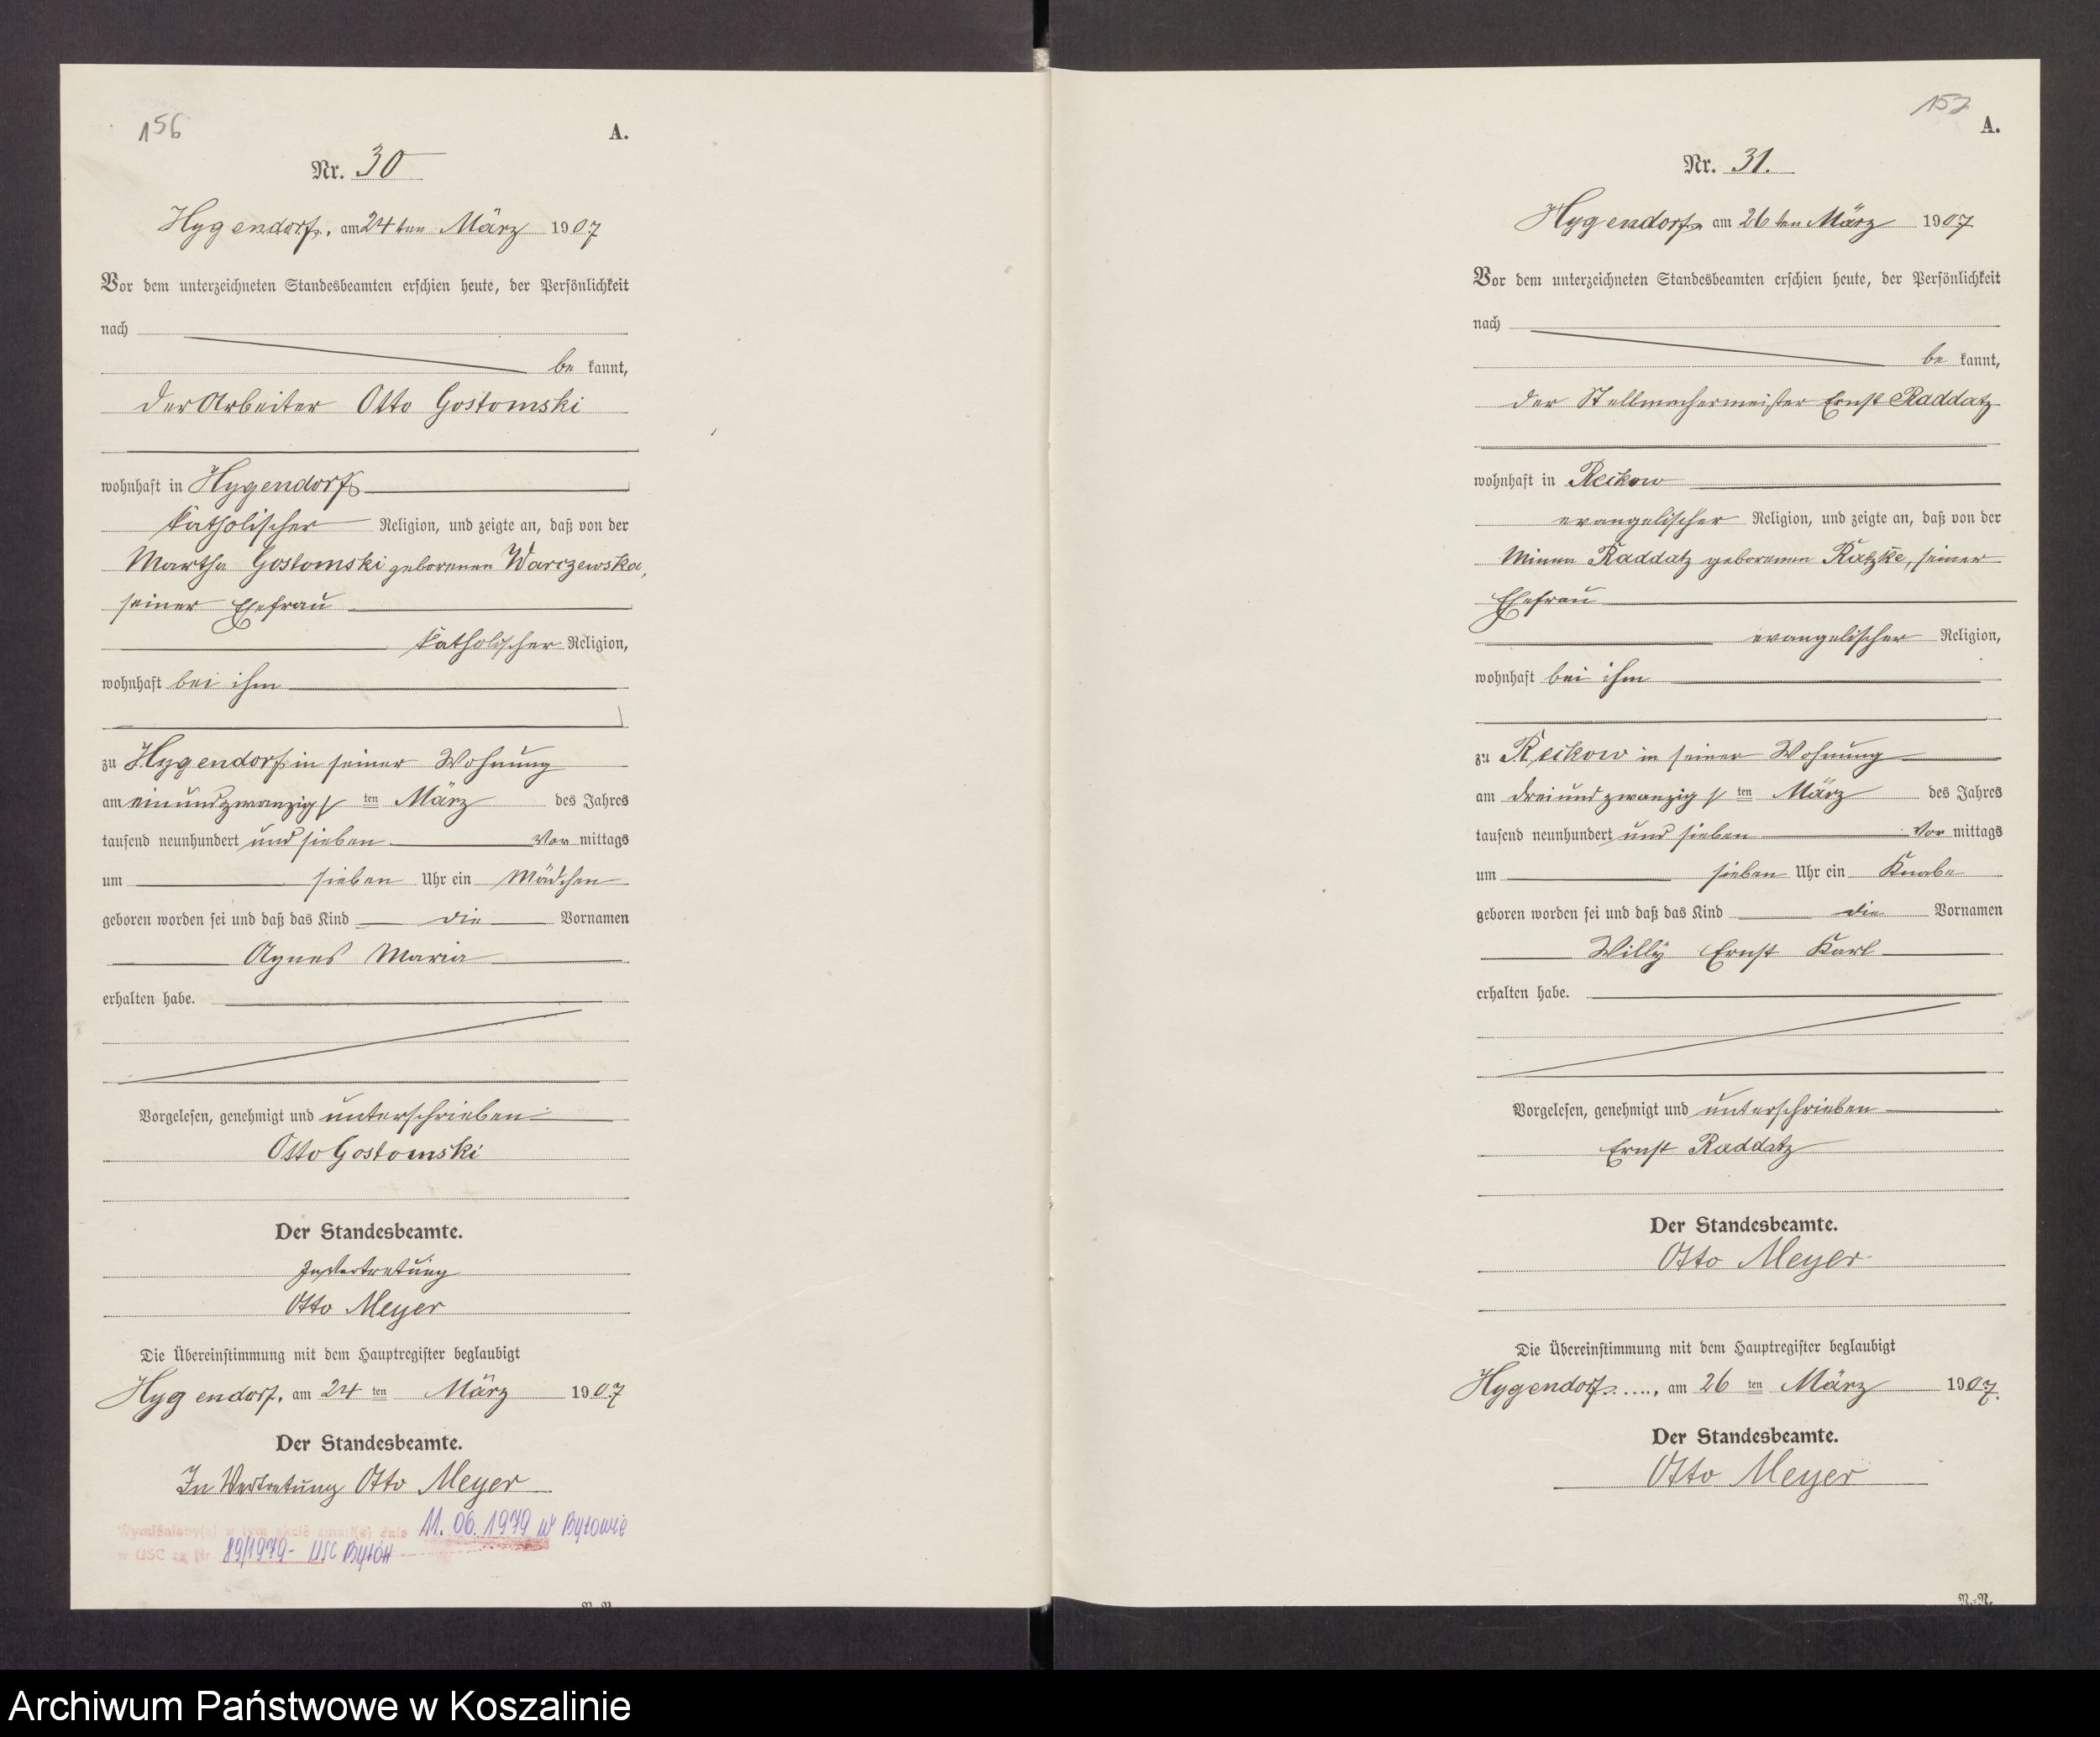 156
A.
Nr. 30
Hygendorf, am 24ten März 1907
Vor dem unterzeichneten Standesbeamten erschien heute, der Persönlichkeit
nach
be kannt,
der Arbeiter Otto Gostomski
wohnhaft in Hygendorf
katholischer Religion, und zeigte an, daß von der
Martha Gostomski geborenen Warczewska,
seiner Ehefrau
katholischer Religion,
wohnhaft bei ihm
zu Hygendorf in seiner Wohnung
am einundzwanzigsten März des Jahres
tausend neunhundert und sieben Vor mittags
um sieben Uhr ein Mädchen
geboren worden sei und daß das Kind die Vornamen
Agnes Maria
erhalten habe.
Vorgelesen, genehmigt und unterschrieben
Otto Gostomski
Der Standesbeamte.
In Vertretung
Otto Meyer
Die Übereinstimmung mit dem Hauptregister beglaubigt
Hygendorf, am 24 ten März 1907
Der Standesbeamte.
In Vertretung Otto Meyer
Wymieniony(a) w tym akcie zmarł(a) dnia 11. 06. 1979 w Bytowie
w USC za Nr 89/1979 - USC Bytów
157
A.
Nr. 31.
Hygendorf am 26ten März 1907
Vor dem unterzeichneten Standesbeamten erschien heute, der Persönlichkeit
nach
be kannt,
der Stellmachermeister Ernst Raddatz
wohnhaft in Reikow
evangelischer Religion, und zeigte an, daß von der
Minna Raddatz geborenen Ratzke, seiner
Ehefrau
evangelischer Religion,
wohnhaft bei ihm
zu Reikow in seiner Wohnung
am dreiundzwanzigsten März des Jahres
tausend neunhundert und sieben Vor mittags
um sieben Uhr ein Knabe
geboren worden sei und daß das Kind die Vornamen
Willy Ernst Karl
erhalten habe.
Vorgelesen, genehmigt und unterschrieben
Ernst Raddatz
Der Standesbeamte.
Otto Meyer
Die Übereinstimmung mit dem Hauptregister beglaubigt
Hygendorf, am 26 ten März 1907.
Der Standesbeamte.
Otto Meyer
Archiwum Państwowe w Koszalinie